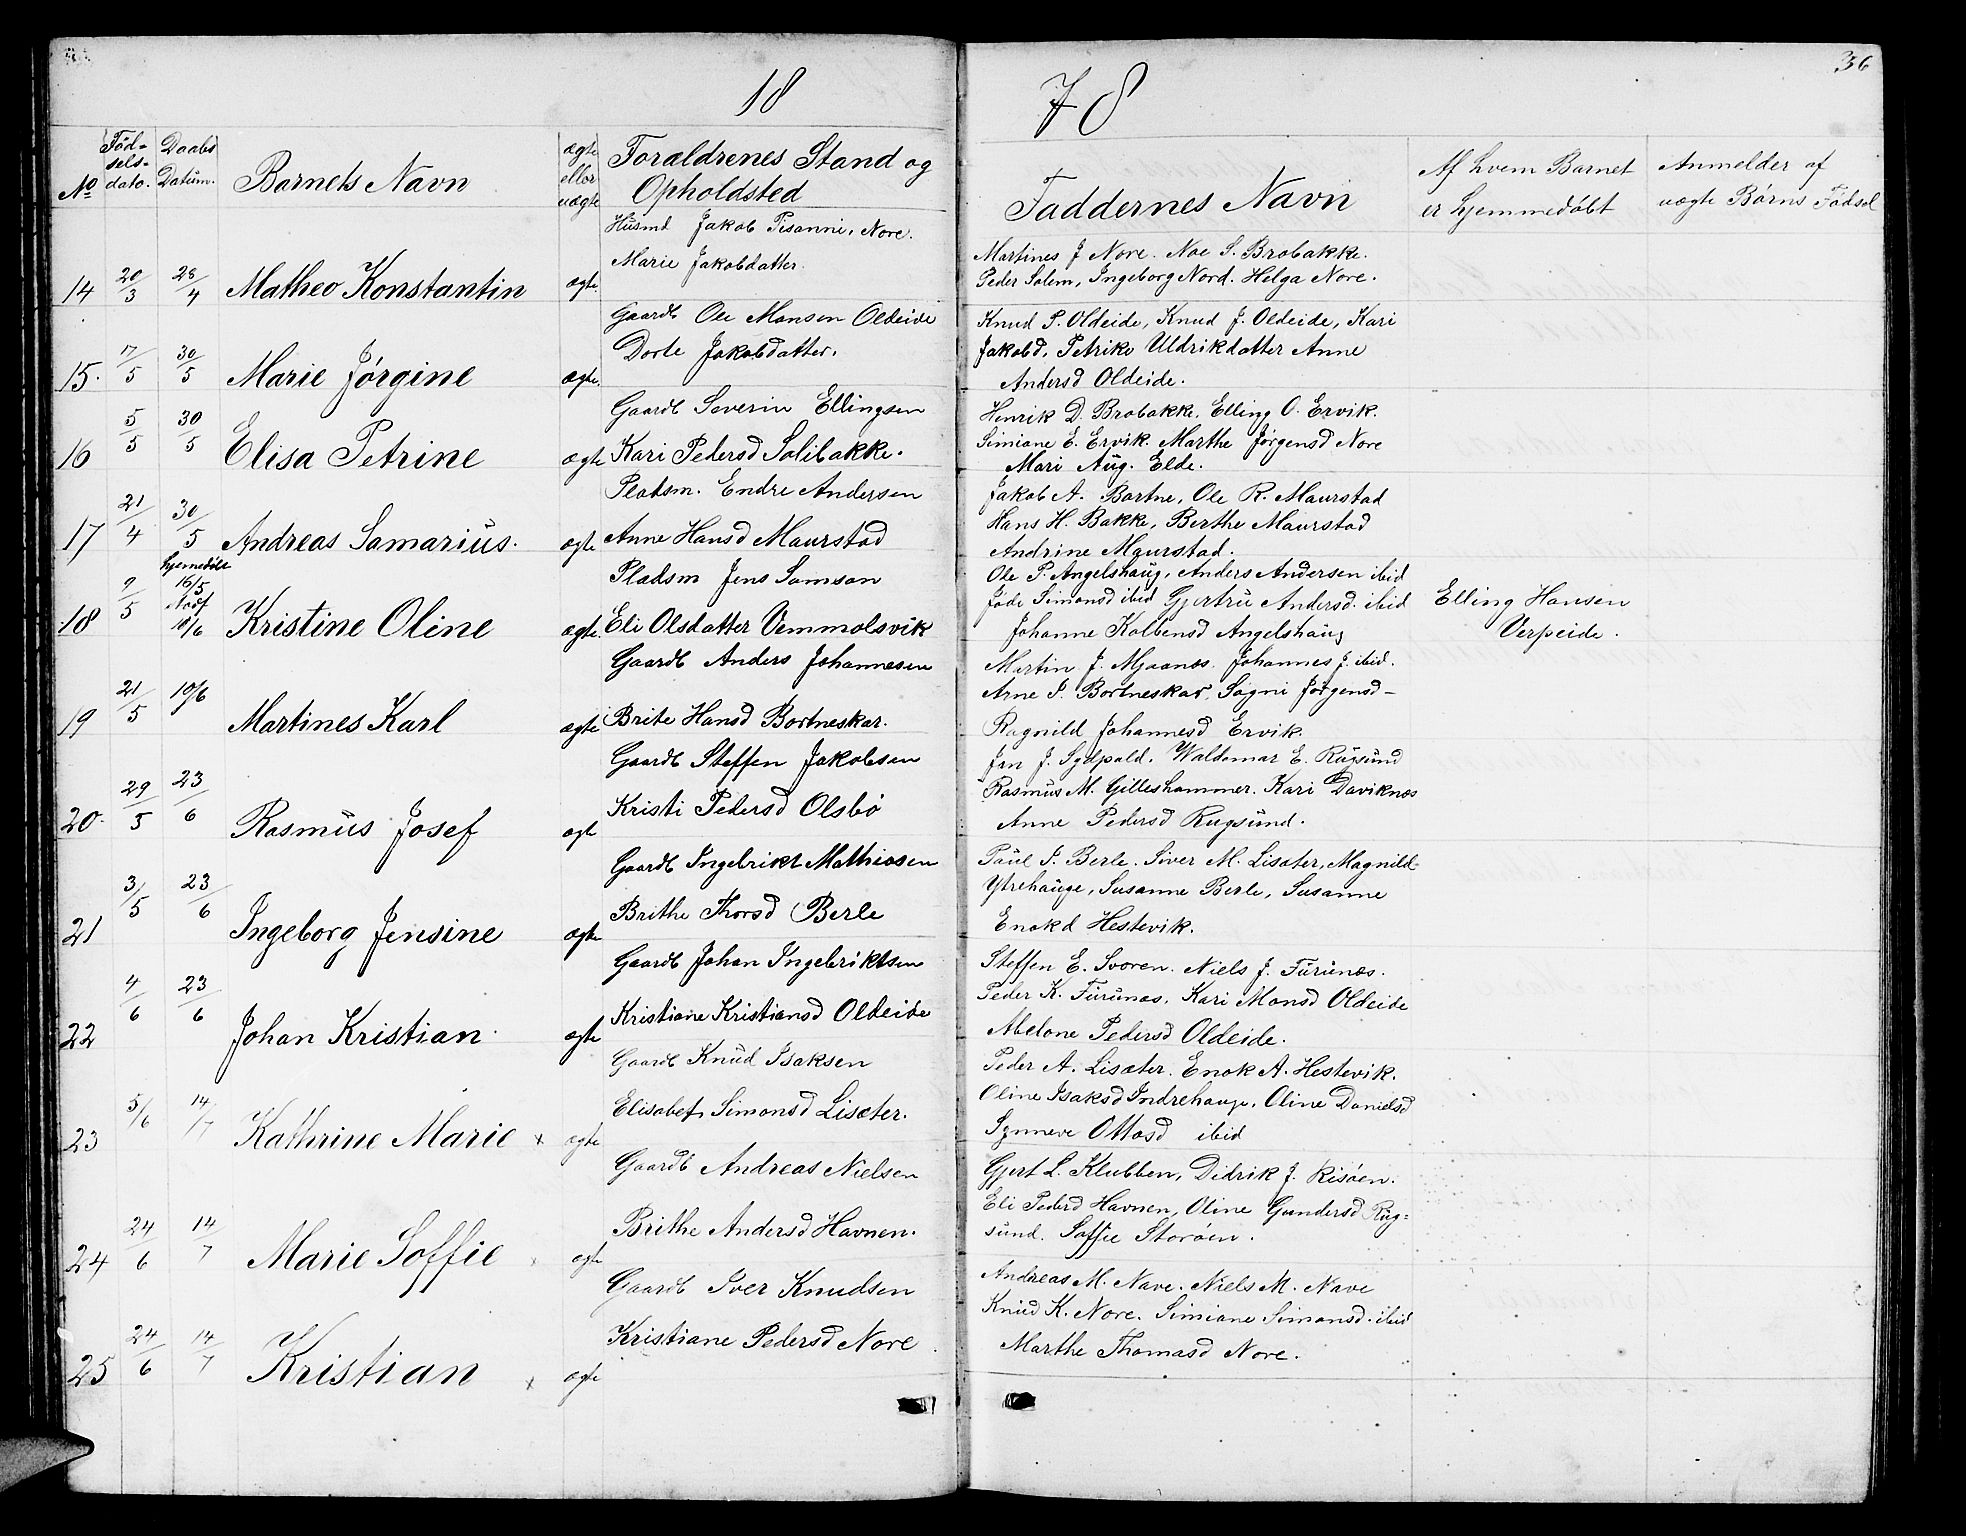 18 78
36
No
Fød-
sels-
dato.
Daabs
Datum.
Barnets Navn
ægte
eller
uægte
Forældrenes Stand og
Opholdsted
Faddernes Navn
Af hvem Barnet
er hjemmedøbt
Anmelder af
uægte Børns Fødsel
14 20/3 28/4 Matheo Konstantin ægte
Husmd Jakob Pisanni, Nore.
Marie Jakobdatter.
Martines J Nore. Noe S. Brobakke.
Peder Solem, Ingeborg Nord. Helga Nore.
15. 17/5 30/5 Marie Jørgine ægte
Gaardb Ole Monsen Oldeide
Dorte Jakobdatter.
Knud P. Oldeide, Knud J. Oldeide, Kari
Jakobd, Petrike Uldrikdatter Anne
Andersd Oldeide.
16 5/5 30/5 Elisa Petrine ægte
Gaardb Severin Ellingsen
Kari Pedersd Solibakke.
Henrik D. Brobakke, Elling O. Ervik.
Simiane E. Ervik. Marthe Jørgensd Nore
Mari Aug. Elde.
17 21/4 30/5 Andreas Samarius. ægte
Pladsm. Endre Andersen
Anne Hansd Maurstad
Jakob A. Bortne, Ole R. Maurstad
Hans H. Bakke, Berthe Maurstad
Andrine Maurstad.
18 9/5 hjemedøbt 16/5 Stadf 10/6 Kristine Oline ægte
Pladsm Jens Samson
Eli Olsdatter Vemmolsvik
Ole P. Angelshaug, Anders Andersen ibid
Jøde Simonsd ibid Gjertru Andersd. ibid
Johanne Kolbensd Angelshaug
Elling Hansen
Verpeide.
19 21/5 10/6 Martines Karl ægte
Gaardb Anders Johannesen
Brite Hansd Bortneskar.
Martin J. Mjaanes. Johannes J. ibid.
Arne I. Bortneskar, Søgni Jørgensd-
Ragnild Johannesd Ervik.
20. 29/5 23/6 Rasmus Josef ægte
Gaardb Steffen Jakobsen
Kristi Pedersd Olsbø
Jan J. Sydpold. Waldemar E. Rugsund
Rasmus M. Gilleshammer. Kari Daviknæs
Anne Pedersd Rugsund.
21 3/5 23/6 Ingeborg Jensine ægte
Gaardb Ingebrikt Mathiasen
Brithe Thorsd Berle
Paul I. Berle. Siver M. Lisæter, Magnild-
Ytrehauge, Susanne Berle, Susanne
Enokd Hestevik.
22 4/6 23/6 Johan Kristian. ægte
Gaardb Johan Ingebriktsen
Kristiane Kristiansd Oldeide
Steffen E. Svoren. Niels J. Furunæs.
Peder K. Furunæs, Kari Monsd Oldeide
Abelone Pedersd Oldeide.
23 5/6 14/7 Kathrine Marie x ægte
Gaardb Knud Isaksen
Elisabet Simonsd Lisæter.
Peder A. Lisæter. Enok A. Hestevik.
Oline Isaksd Indrehauge, Oline Danielsd
Synneve Ottosd ibid
24 24/6 14/7 Marie Soffie x ægte
Gaardb Andreas Nielsen
Brithe Andersd Havnen.
Gjert L. Klubben, Didrik J. Risøen.
Eli Pedersd Havnen, Oline Gundersd Rug=
sund. Soffie Storøen.
25 24/6 14/7 Kristian x ægte
Gaardb Iver Knudsen
Kristiane Pedersd Nore
Andreas M. Nave. Niels M. Nave
Knud K. Nore. Simiane Simonsd. ibid
Marthe Thomasd Nore.